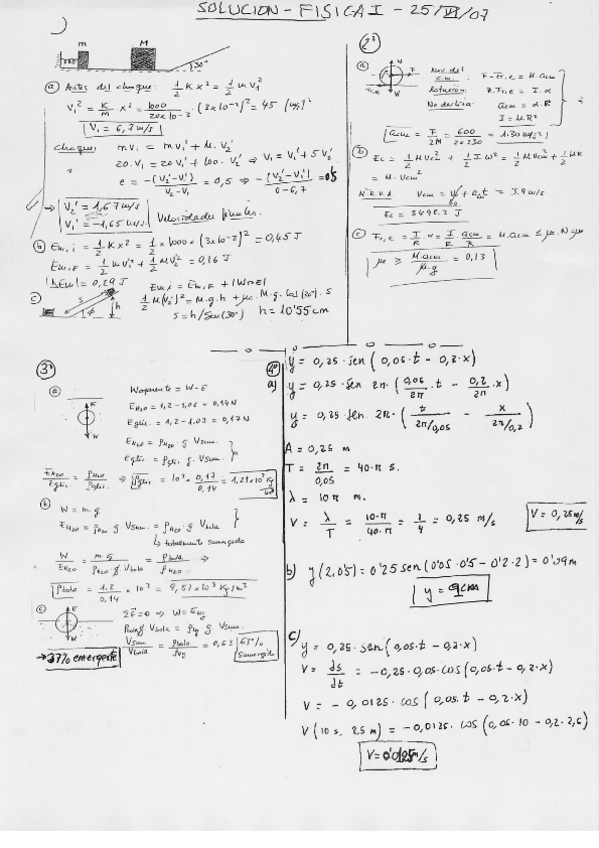 SOLUCION - FISICA I - 25/VI/07
m
M
30°
ⓐ Antes del choque: 1/2 K x² = 1/2 m V₁²
V₁² = K/m x² = 1000/20×10⁻³ · (3×10⁻²)² = 45 (m/s)²
V₁ = 6,7 m/s
Choque: m v₁ = m v₁' + M · V₂'
20 · V₁ = 20 V₁' + 100 · V₂' ⇒ V₁ = V₁' + 5 V₂'
e = -(V₂' - V₁')/(V₂ - V₁) = 0,5 ⇒ -(V₂' - V₁')/(0 - 6,7) = 0'5
V₂' = 1,67 m/s
V₁' = -1,65 m/s
Velocidades finales.
ⓑ Em,i = 1/2 K x² = 1/2 × 1000 × (3×10⁻²)² = 0,45 J
Em,F = 1/2 m V₁'² + 1/2 M V₂'² = 0,16 J
|ΔEm| = 0,29 J
Em,i = Em,F + |W nc|
ⓒ
1/2 M (V₂')² = M · g · h + μc · M · g · cos(30°) · s
s = h/sen(30°) h = 10'55 cm
2º
ⓐ
F
W
Rotación: R · Fr,e = I · α
No desliza: acm = α · R
I = M · R²
acm = F/2M = 600/2×230 = 1.30 m/s²
ⓑ Ec = 1/2 M Vcm² + 1/2 I ω² = 1/2 M Vcm² + 1/2 M R
= M · Vcm²
= 3.9 m/s
Ec = 3498.3 J
ⓒ Fr,e = I/R · α = I/R · acm/R = M · acm ≤ μe · N = μ
μe ≥ M · acm/M · g = 0,13
3º
ⓐ
E
W
Waparente = W - E
E H2O = 1,2 - 1,06 = 0,14 N
E glic. = 1,2 - 1.03 = 0,17 N
E H2O = ρH2O · g · Vsum.
E glic. = ρglic. g · Vsum.
E H2O/E glic. = ρH2O/ρglic. ⇒ ρglic = 10³ · 0,17/0,14 = 1,21×10³ Kg/m³
ⓑ W = m · g
E H2O = ρH2O · g · Vsum. = ρH2O · g · Vbola
↳ totalmente sumergida
W/E H2O = m · g/ρH2O · g · Vbola = ρbola/ρH2O ⇒
ρbola = 1,2/0,14 × 10³ = 8,57×10³ Kg/m³
ⓒ
E
W
ΣF = 0 ⇒ W = E Hg
ρbola g Vbola = ρHg g Vsum.
Vsum/Vbola = ρbola/ρHg = 0,63 63%
sumergido
→ 37% emergente
4º
a)
y = 0,25 · sen (0,05 · t - 0,2 · x)
y = 0,25 · sen 2π · (0,05/2π · t - 0,2/2π · x)
y = 0,25 · sen 2π · (t/2π/0,05 - x/2π/0,2)
A = 0,25 m
T = 2π/0,05 = 40·π s.
λ = 10π m.
V = λ/T = 10·π/40·π = 1/4 = 0,25 m/s
V = 0,25 m/s
b) y (2,0'5) = 0'25 sen (0'05 · 0'5 - 0'2 · 2) = 0'09 m
y = 9cm
c) y = 0,25 · sen (0,05 · t - 0,2 · x)
V = ds/dt = - 0,25 · 0,05 · cos (0,05 · t - 0,2 · x)
V = - 0,0125 · cos (0,05 · t - 0,2 · x)
V (10 s, 2.5 m) = - 0,0125 · cos (0,05 · 10 - 0,2 · 2,5)
V = 0'0125 m/s